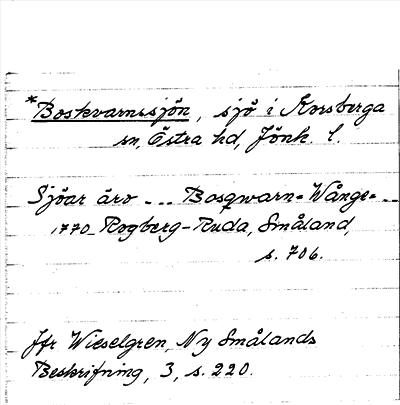 *Boskvarnssjön, sjö i Korsberga
sn, Östra hd, Jönk. l.
Sjöar äro --- Bosqwarn= Wånge= --
1770 Rogberg-Ruda, Småland,
s. 706.
Jfr Wieselgren, Ny Smålands
Beskrifning, 3, s. 220.